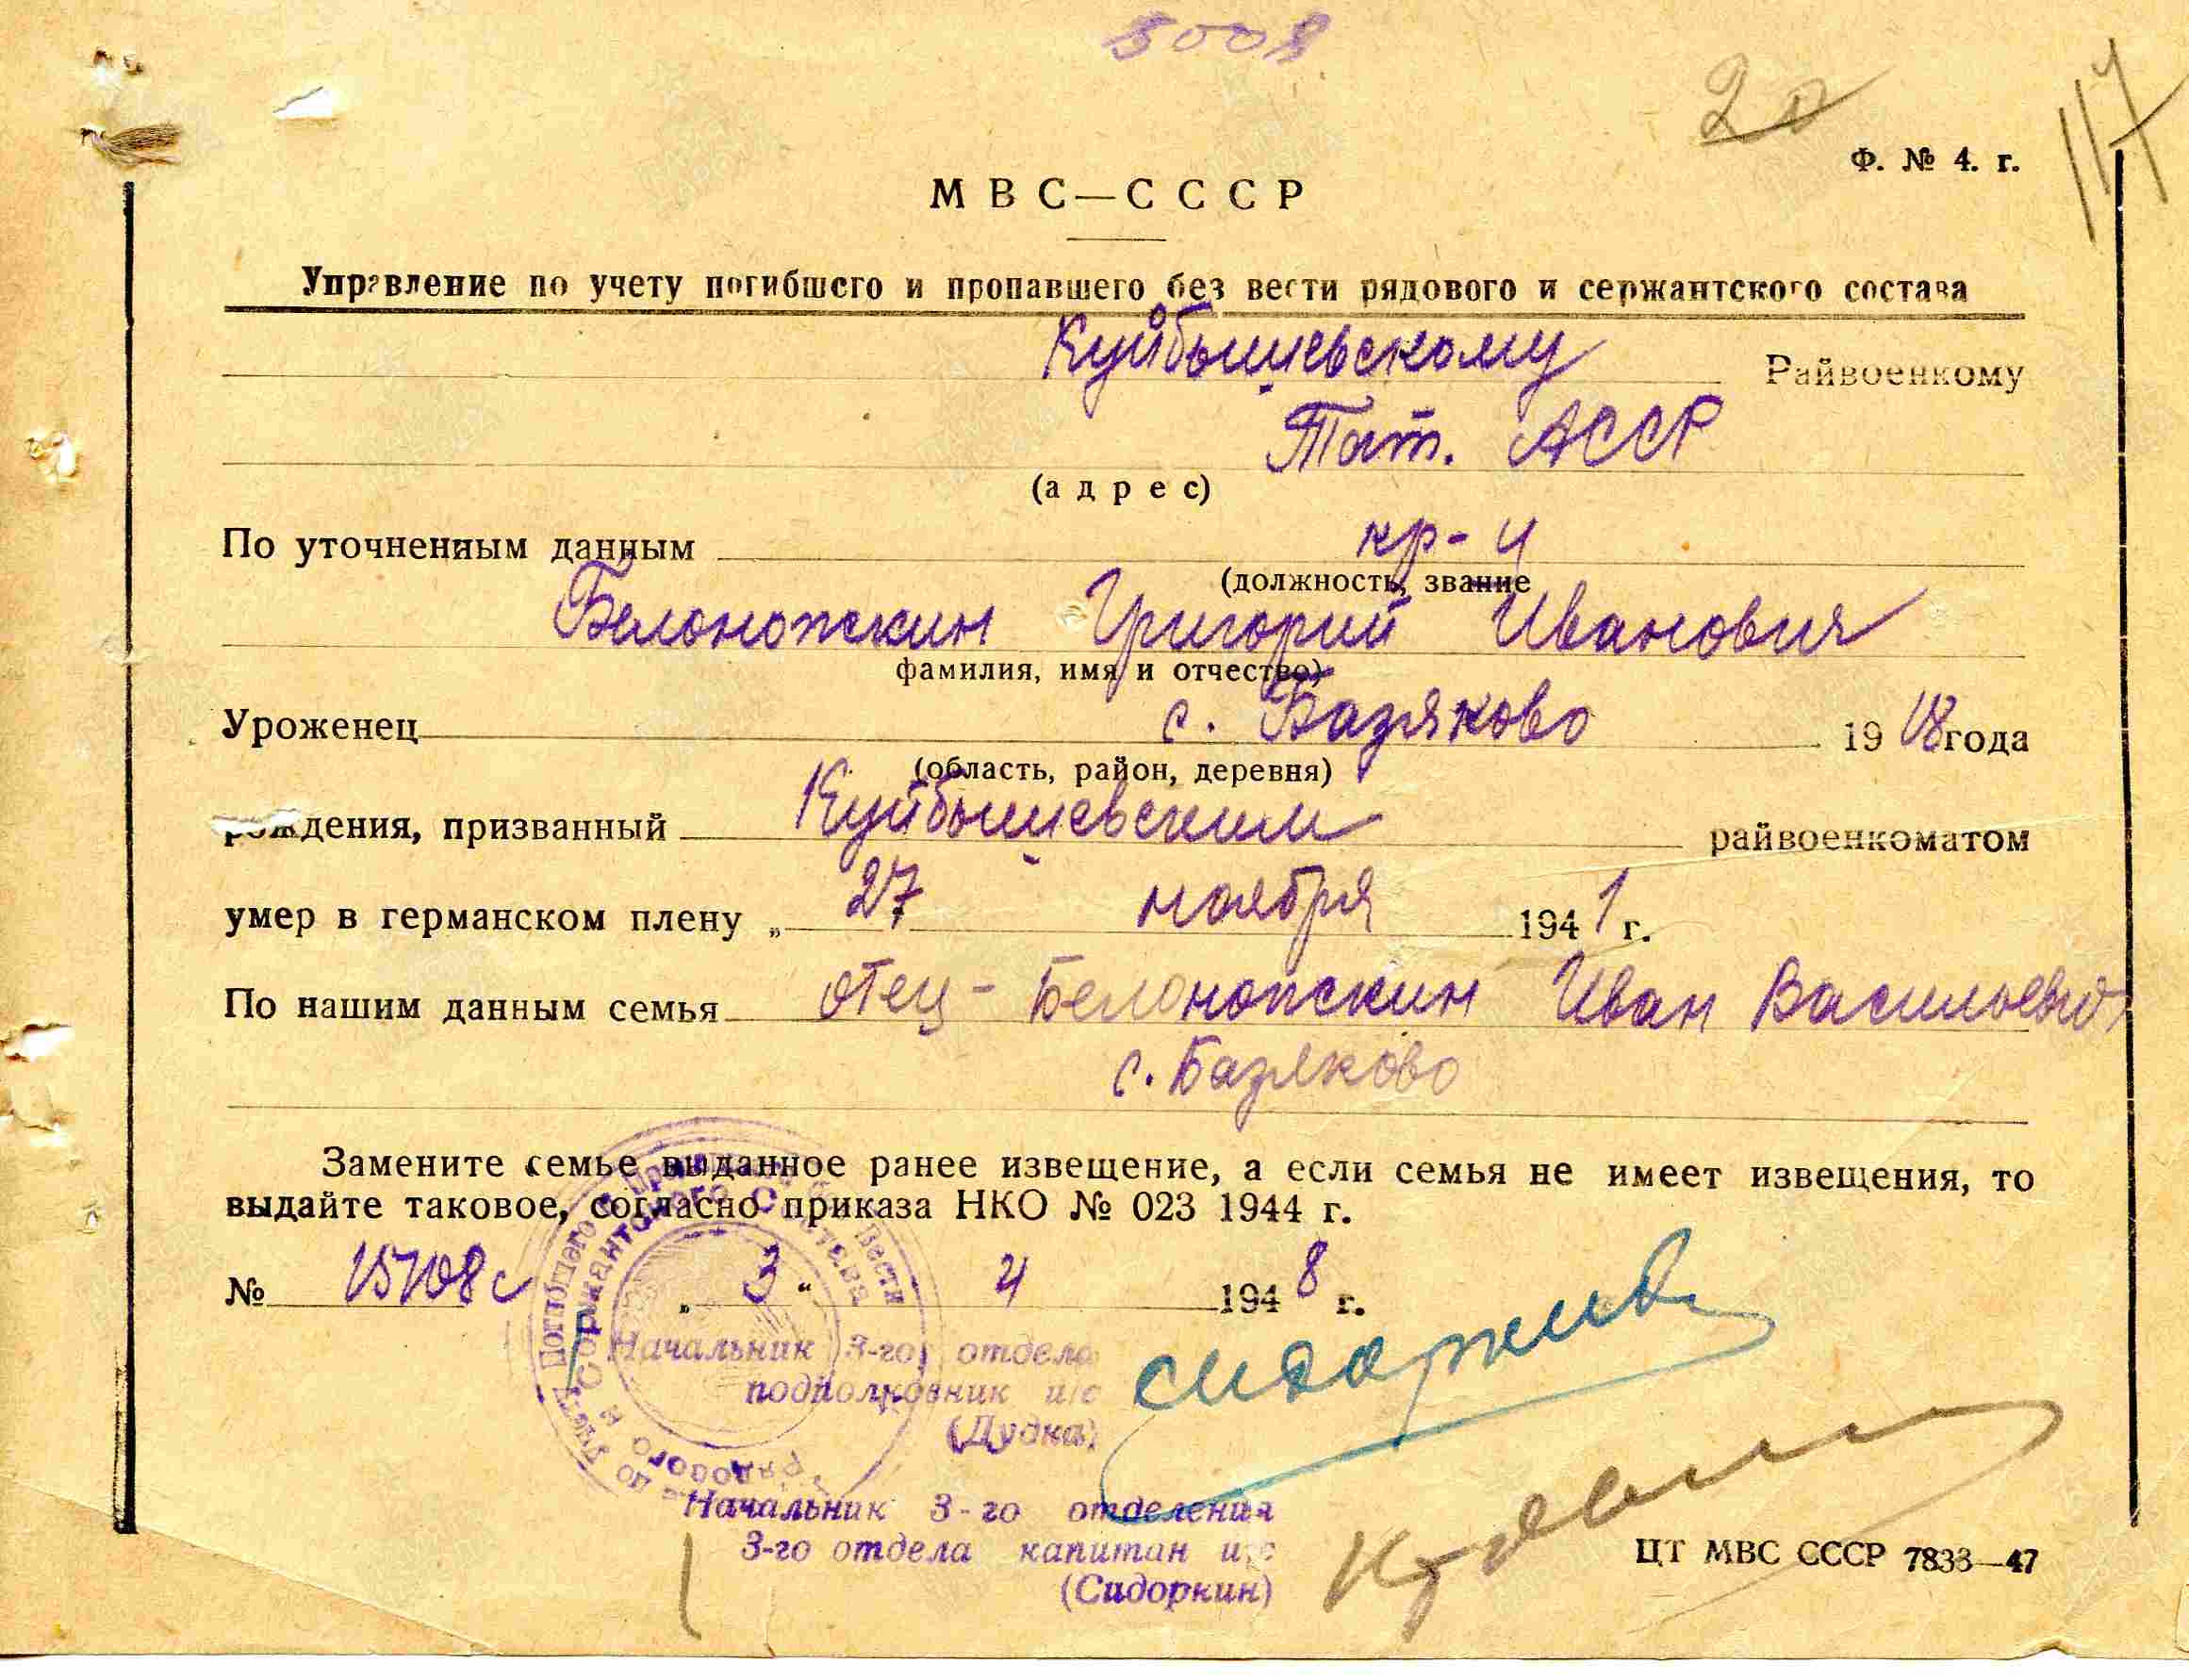 5008
20
117
Ф. № 4. г.
МВС—СССР
Управление по учету погибшего и пропавшего без вести рядового и сержантского состава
Куйбышевскому Райвоенкому
Тат. АССР
(адрес)
По уточненным данным кр-ц
(должность, звание
Белоножкин Григорий Иванович
фамилия, имя и отчество)
Уроженец с. Базяково 1918 года
(область, район, деревня)
рождения, призванный Куйбышевским райвоенкоматом
умер в германском плену „ 27 ноября 1941 г.
По нашим данным семья отец - Белоножкин Иван Васильевич
с. Базяково
Замените семье выданное ранее извещение, а если семья не имеет извещения, то
выдайте таковое, согласно приказа НКО № 023 1944 г.
№ 15708с „ 3 “ 4 1948 г.
Начальник 3-го отдела
подполковник и/с
(Дудка)
Сидоркин
Начальник 3-го отделения
3-го отдела капитан и/с
(Сидоркин)
ЦТ МВС СССР 7833—47